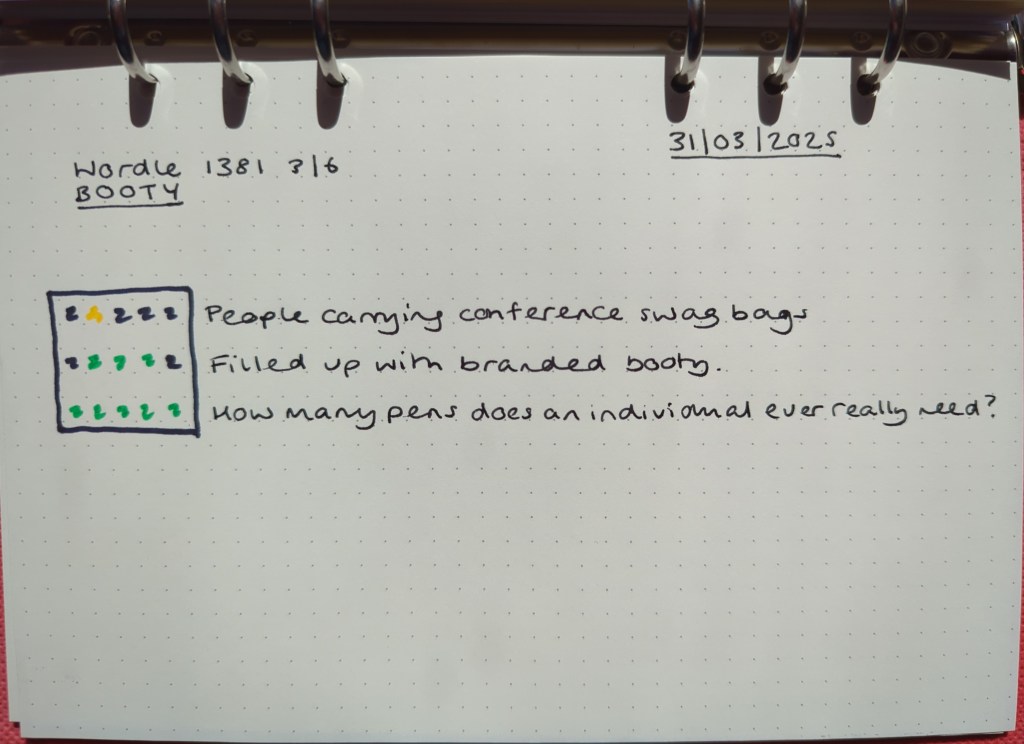 31/03/2025
Wordle 1381 3/6
BOOTY
People carrying conference swag bags
Filled up with branded booty.
How many pens does an individual ever really need?